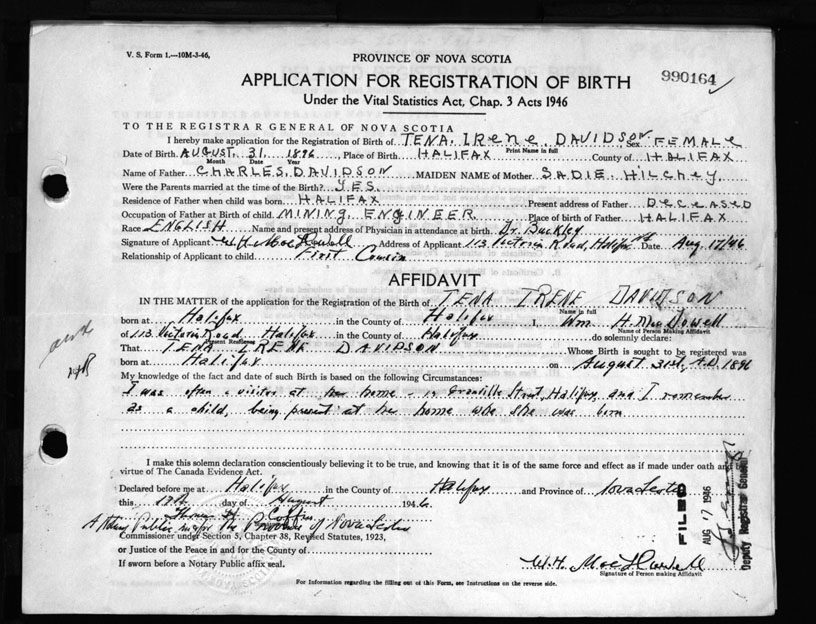 V. S. Form 1.—10M-3-46,
PROVINCE OF NOVA SCOTIA
APPLICATION FOR REGISTRATION OF BIRTH
990164
Under the Vital Statistics Act, Chap. 3 Acts 1946
TO THE REGISTRAR GENERAL OF NOVA SCOTIA
I hereby make application for the Registration of Birth of TENA IRENE DAVIDSON Sex FEMALE
Print Name in full
Date of Birth AUGUST 31 1896 Place of Birth HALIFAX County of HALIFAX
Month Date Year
Name of Father CHARLES DAVIDSON MAIDEN NAME of Mother SADIE HILCHEY
Were the Parents married at the time of the Birth? YES
Residence of Father when child was born HALIFAX Present address of Father DECEASED
Occupation of Father at Birth of child MINING ENGINEER Place of birth of Father HALIFAX
Race ENGLISH Name and present address of Physician in attendance at birth Dr. Buckley
Signature of Applicant W. H. MacDowell Address of Applicant 113 Victoria Road, Halifax NS Date Aug 17/46
Relationship of Applicant to child First Cousin
AFFIDAVIT
IN THE MATTER of the application for the Registration of the Birth of TENA IRENE DAVIDSON
Name in full
born at Halifax in the County of Halifax I, Wm H. MacDowell
Name of Person making Affidavit
of 113 Victoria Road Halifax in the County of Halifax do solemnly declare:
Present Residence
That TENA IRENE DAVIDSON Whose Birth is sought to be registered was
born at Halifax on August 31st, A.D. 1896
My knowledge of the fact and date of such Birth is based on the following Circumstances:
I was often a visitor at her home - 19 Granville Street, Halifax and I remember
as a child, being present at the home where she was born
I make this solemn declaration conscientiously believing it to be true, and knowing that it is of the same force and effect as if made under oath and by
virtue of The Canada Evidence Act.
Declared before me at Halifax in the County of Halifax and Province of Nova Scotia
this 17th day of August 1946
Coffin
A Notary Public in & for the Province of Nova Scotia
Commissioner under Section 5, Chapter 38, Revised Statutes, 1923,
or Justice of the Peace in and for the County of
If sworn before a Notary Public affix seal.
W. H. MacDowell
Signature of Person making Affidavit
For Information regarding the filling out of this Form, see Instructions on the reverse side.
FILED
AUG 17 1946
Deputy Registrar General